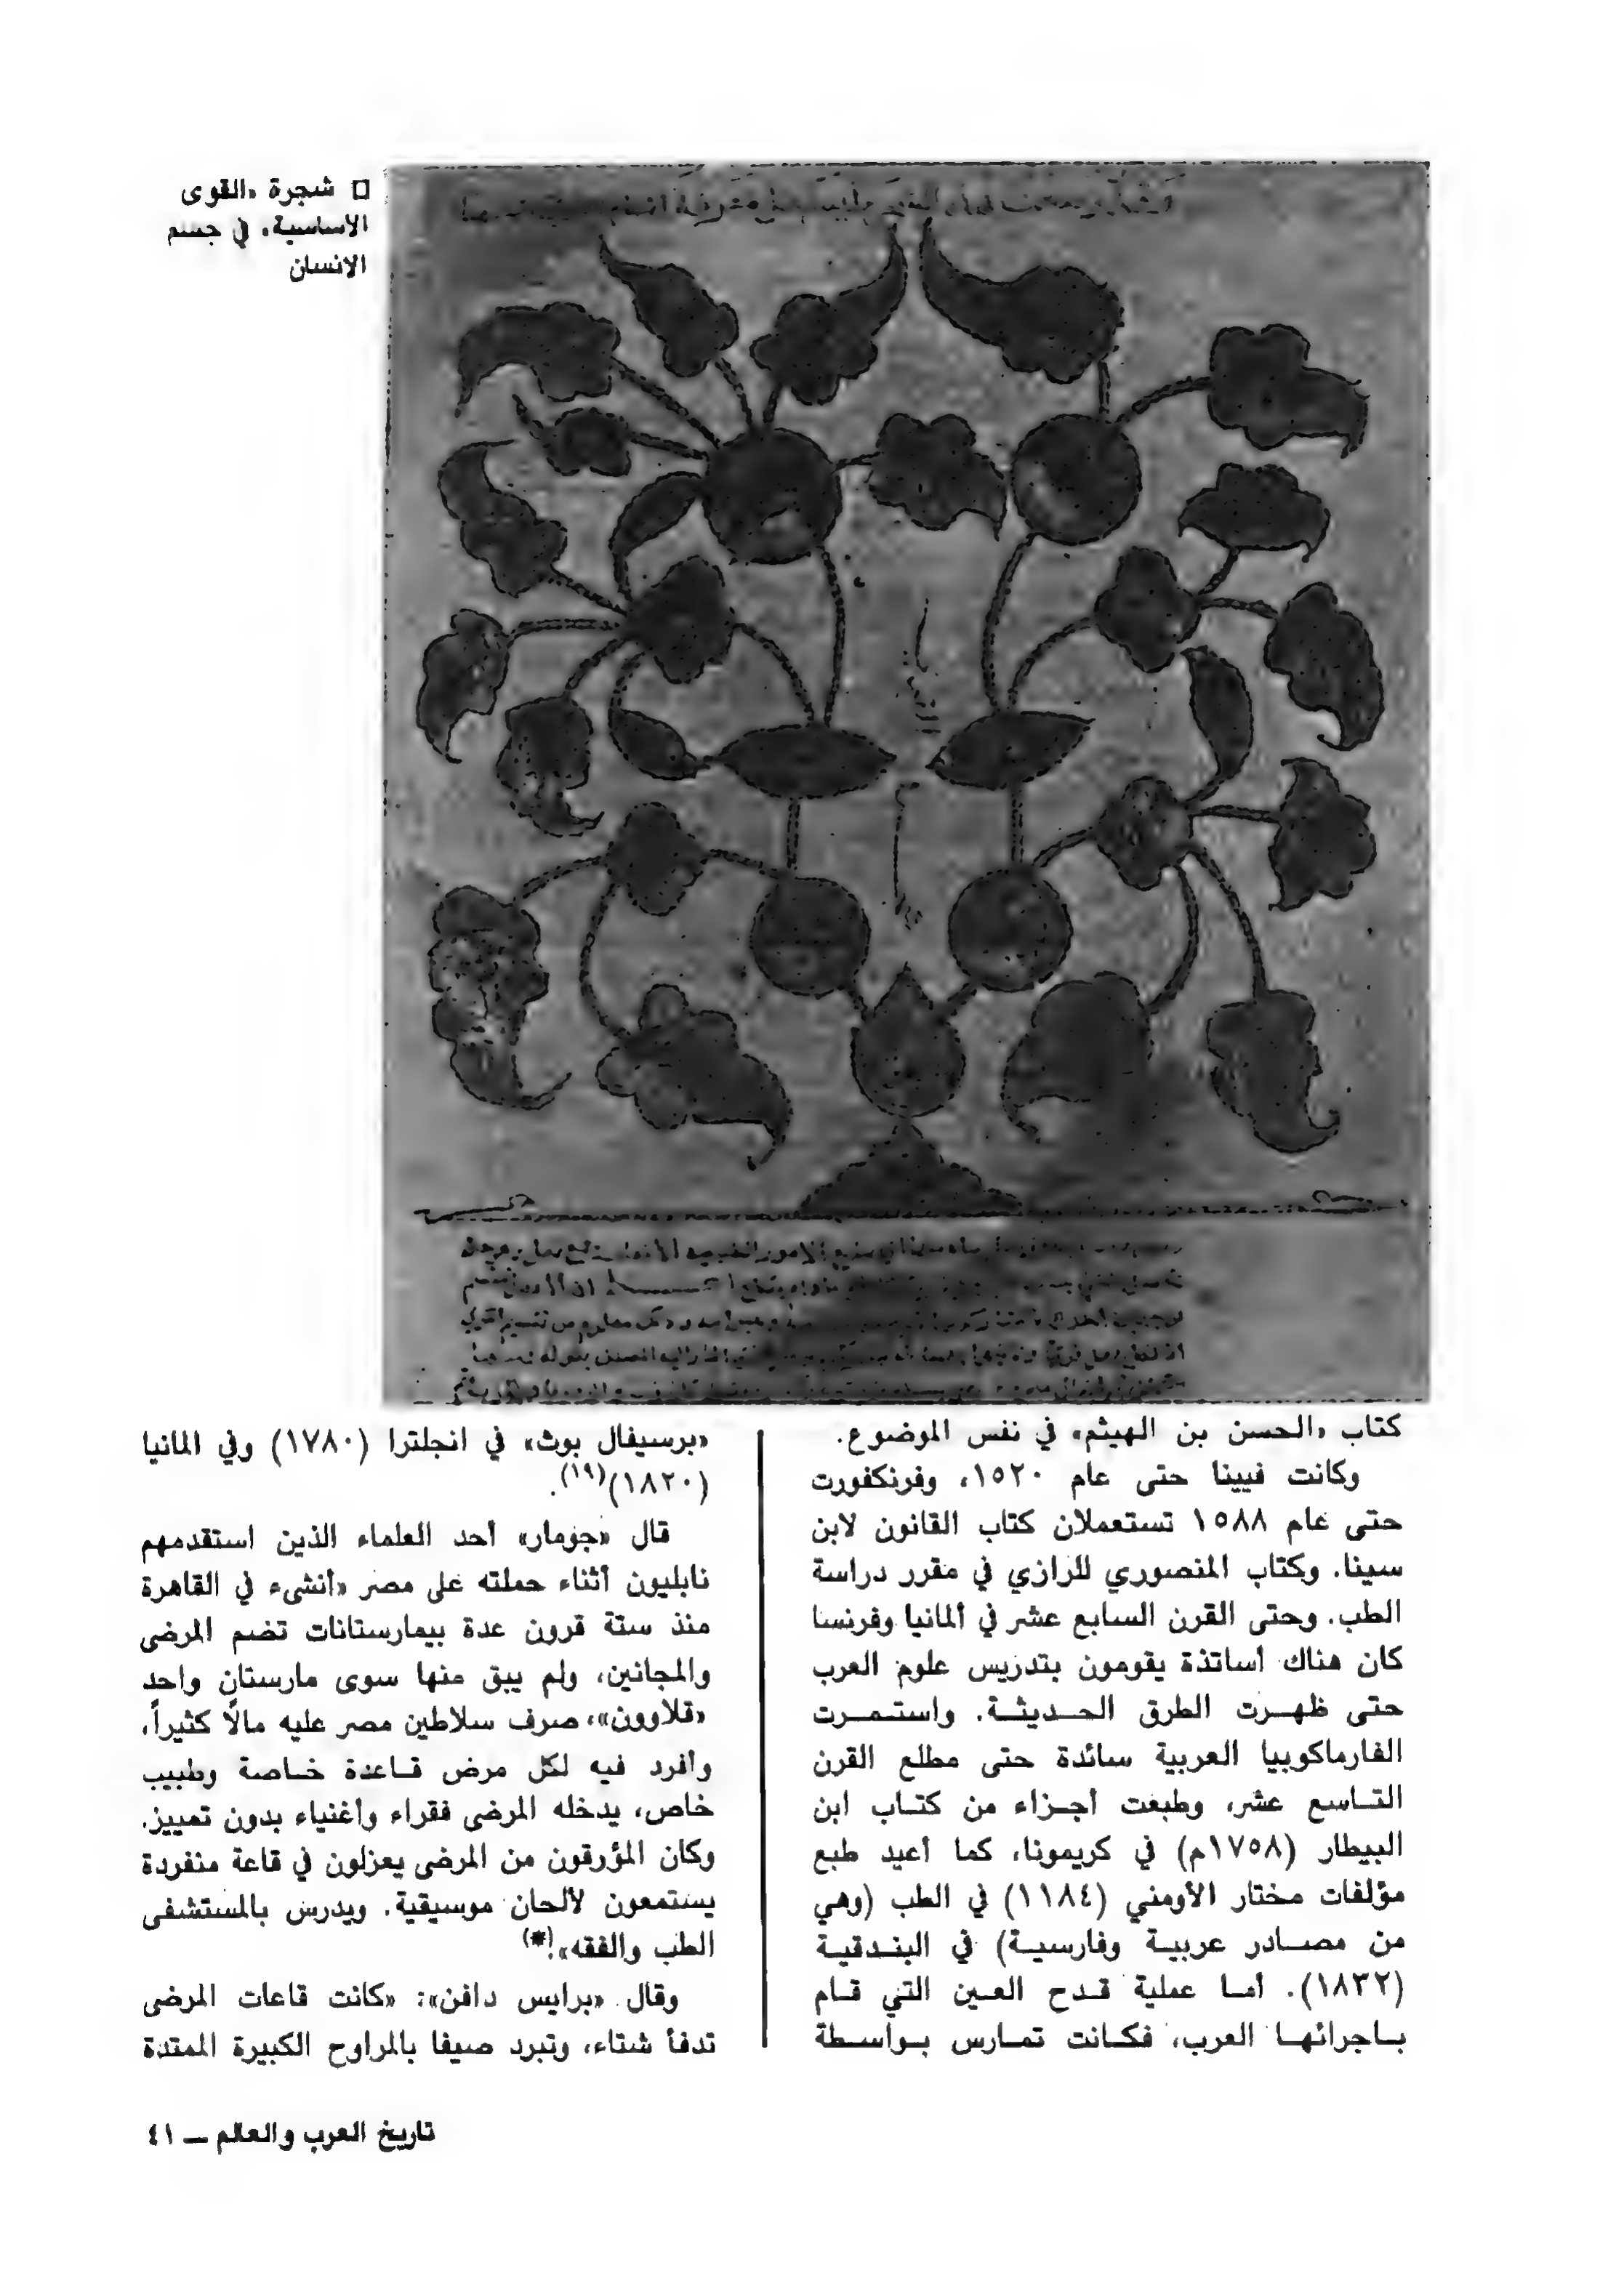 □ شجرة «القوى
الاساسية» في جسم
الانسان
كتاب «الحسن بن الهيثم» في نفس الموضوع.
وكانت فيينا حتى عام ١٥٢٠، وفرنكفورت
حتى عام ١٥٨٨ تستعملان كتاب القانون لابن
سينا. وكتاب المنصوري للرازي في مقرر دراسة
الطب. وحتى القرن السابع عشر في ألمانيا وفرنسا
كان هناك أساتذة يقومون بتدريس علوم العرب
حتى ظهرت الطرق الحديثة. واستمرت
الفارماكوبيا العربية سائدة حتى مطلع القرن
التاسع عشر، وطبعت أجزاء من كتاب ابن
البيطار (١٧٥٨م) في كريمونا، كما أعيد طبع
مؤلفات مختار الأومني (١١٨٤) في الطب (وهي
من مصادر عربية وفارسية) في البندقية
(١٨٣٢). أما عملية قدح العين التي قام
باجرائها العرب، فكانت تمارس بواسطة
«برسيفال بوث» في انجلترا (١٧٨٠) وفي المانيا
(١٨٢٠)(١٩).
قال «جومار» أحد العلماء الذين استقدمهم
نابليون أثناء حملته على مصر «أنشىء في القاهرة
منذ ستة قرون عدة بيمارستانات تضم المرضى
والمجانين، ولم يبق منها سوى مارستان واحد
«قلاوون»، صرف سلاطين مصر عليه مالًا كثيراً،
وأفرد فيه لكل مرض قاعدة خاصة وطبيب
خاص، يدخله المرضى فقراء وأغنياء بدون تمييز.
وكان المؤرقون من المرضى يعزلون في قاعة منفردة
يستمعون لألحان موسيقية. ويدرس بالمستشفى
الطب والفقه».(*)
وقال «برايس دافن»: «كانت قاعات المرضى
تدفأ شتاء، وتبرد صيفا بالمراوح الكبيرة الممتدة
تاريخ العرب والعالم — ٤١